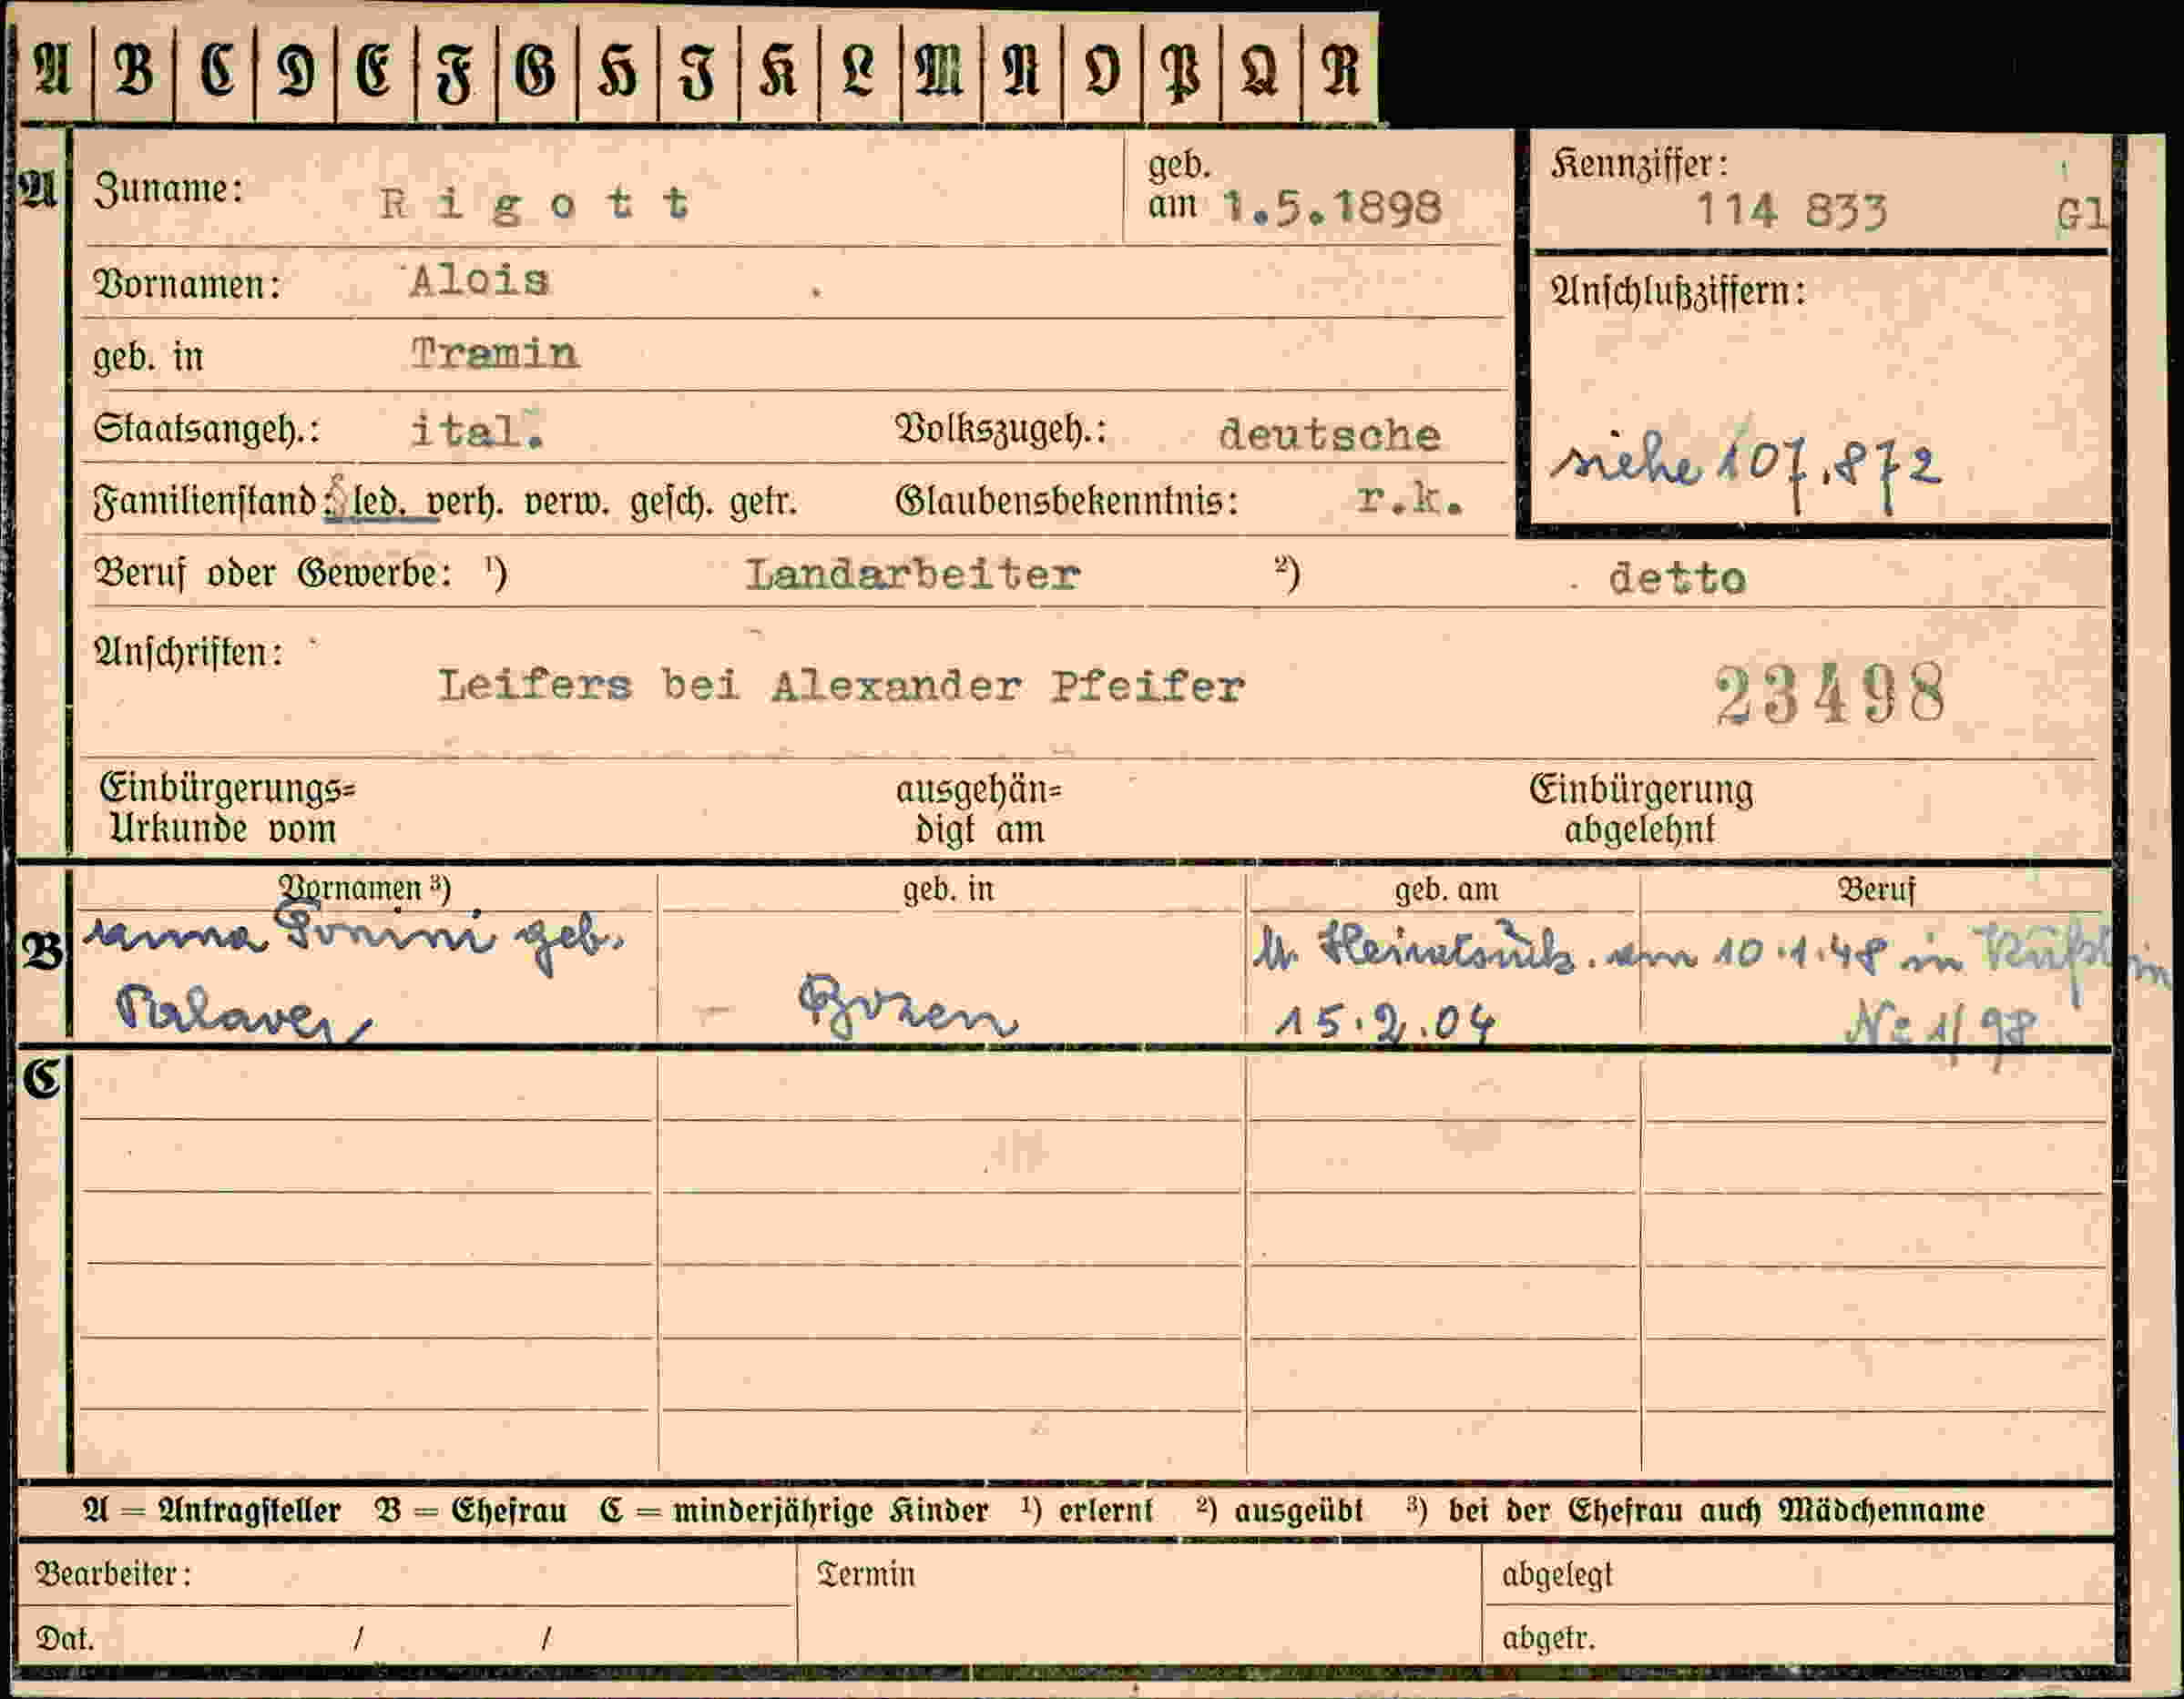 A B C D E F G H I K L M N O P Q R
A Zuname: Rigott geb. am 1.5.1898 Kennziffer: 114 833 Gl
Vornamen: Alois Anschlußziffern:
geb. in Tramin
Staatsangeh.: ital. Volkszugeh.: deutsche siehe 107.872
Familienstand: led. verh. verw. gesch. getr. Glaubensbekenntnis: r.k.
Beruf oder Gewerbe: ¹) Landarbeiter ²) detto
Anschriften:
Leifers bei Alexander Pfeifer 23498
Einbürgerungs= ausgehän= Einbürgerung
Urkunde vom digt am abgelehnt
Vornamen ³) geb. in geb. am Beruf
B Anna geb. lt. am 10.1.48 in Kufstein
Palaver Bozen 15.2.04 No 1/98
C
A = Antragsteller B = Ehefrau C = minderjährige Kinder ¹) erlernt ²) ausgeübt ³) bei der Ehefrau auch Mädchenname
Bearbeiter: Termin abgelegt
Dat. / / abgetr.